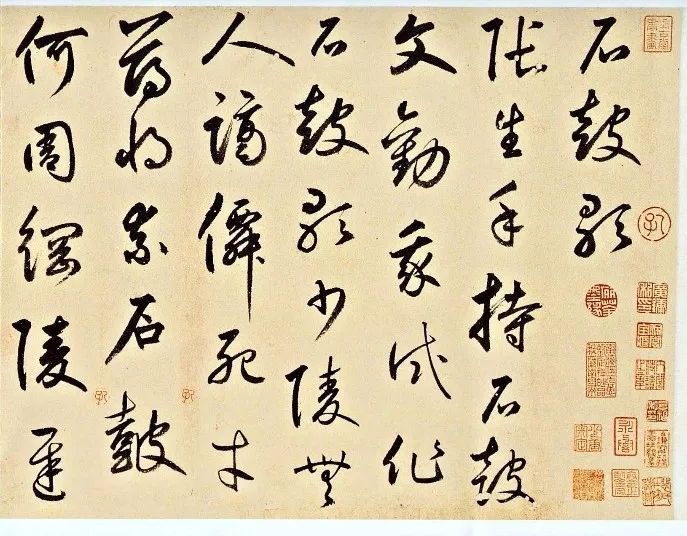 石鼓歌
張生手持石鼓
文勸我试作
石鼓歌少陵無
人謫僊死才
薄將奈石鼓
何周綱陵遲